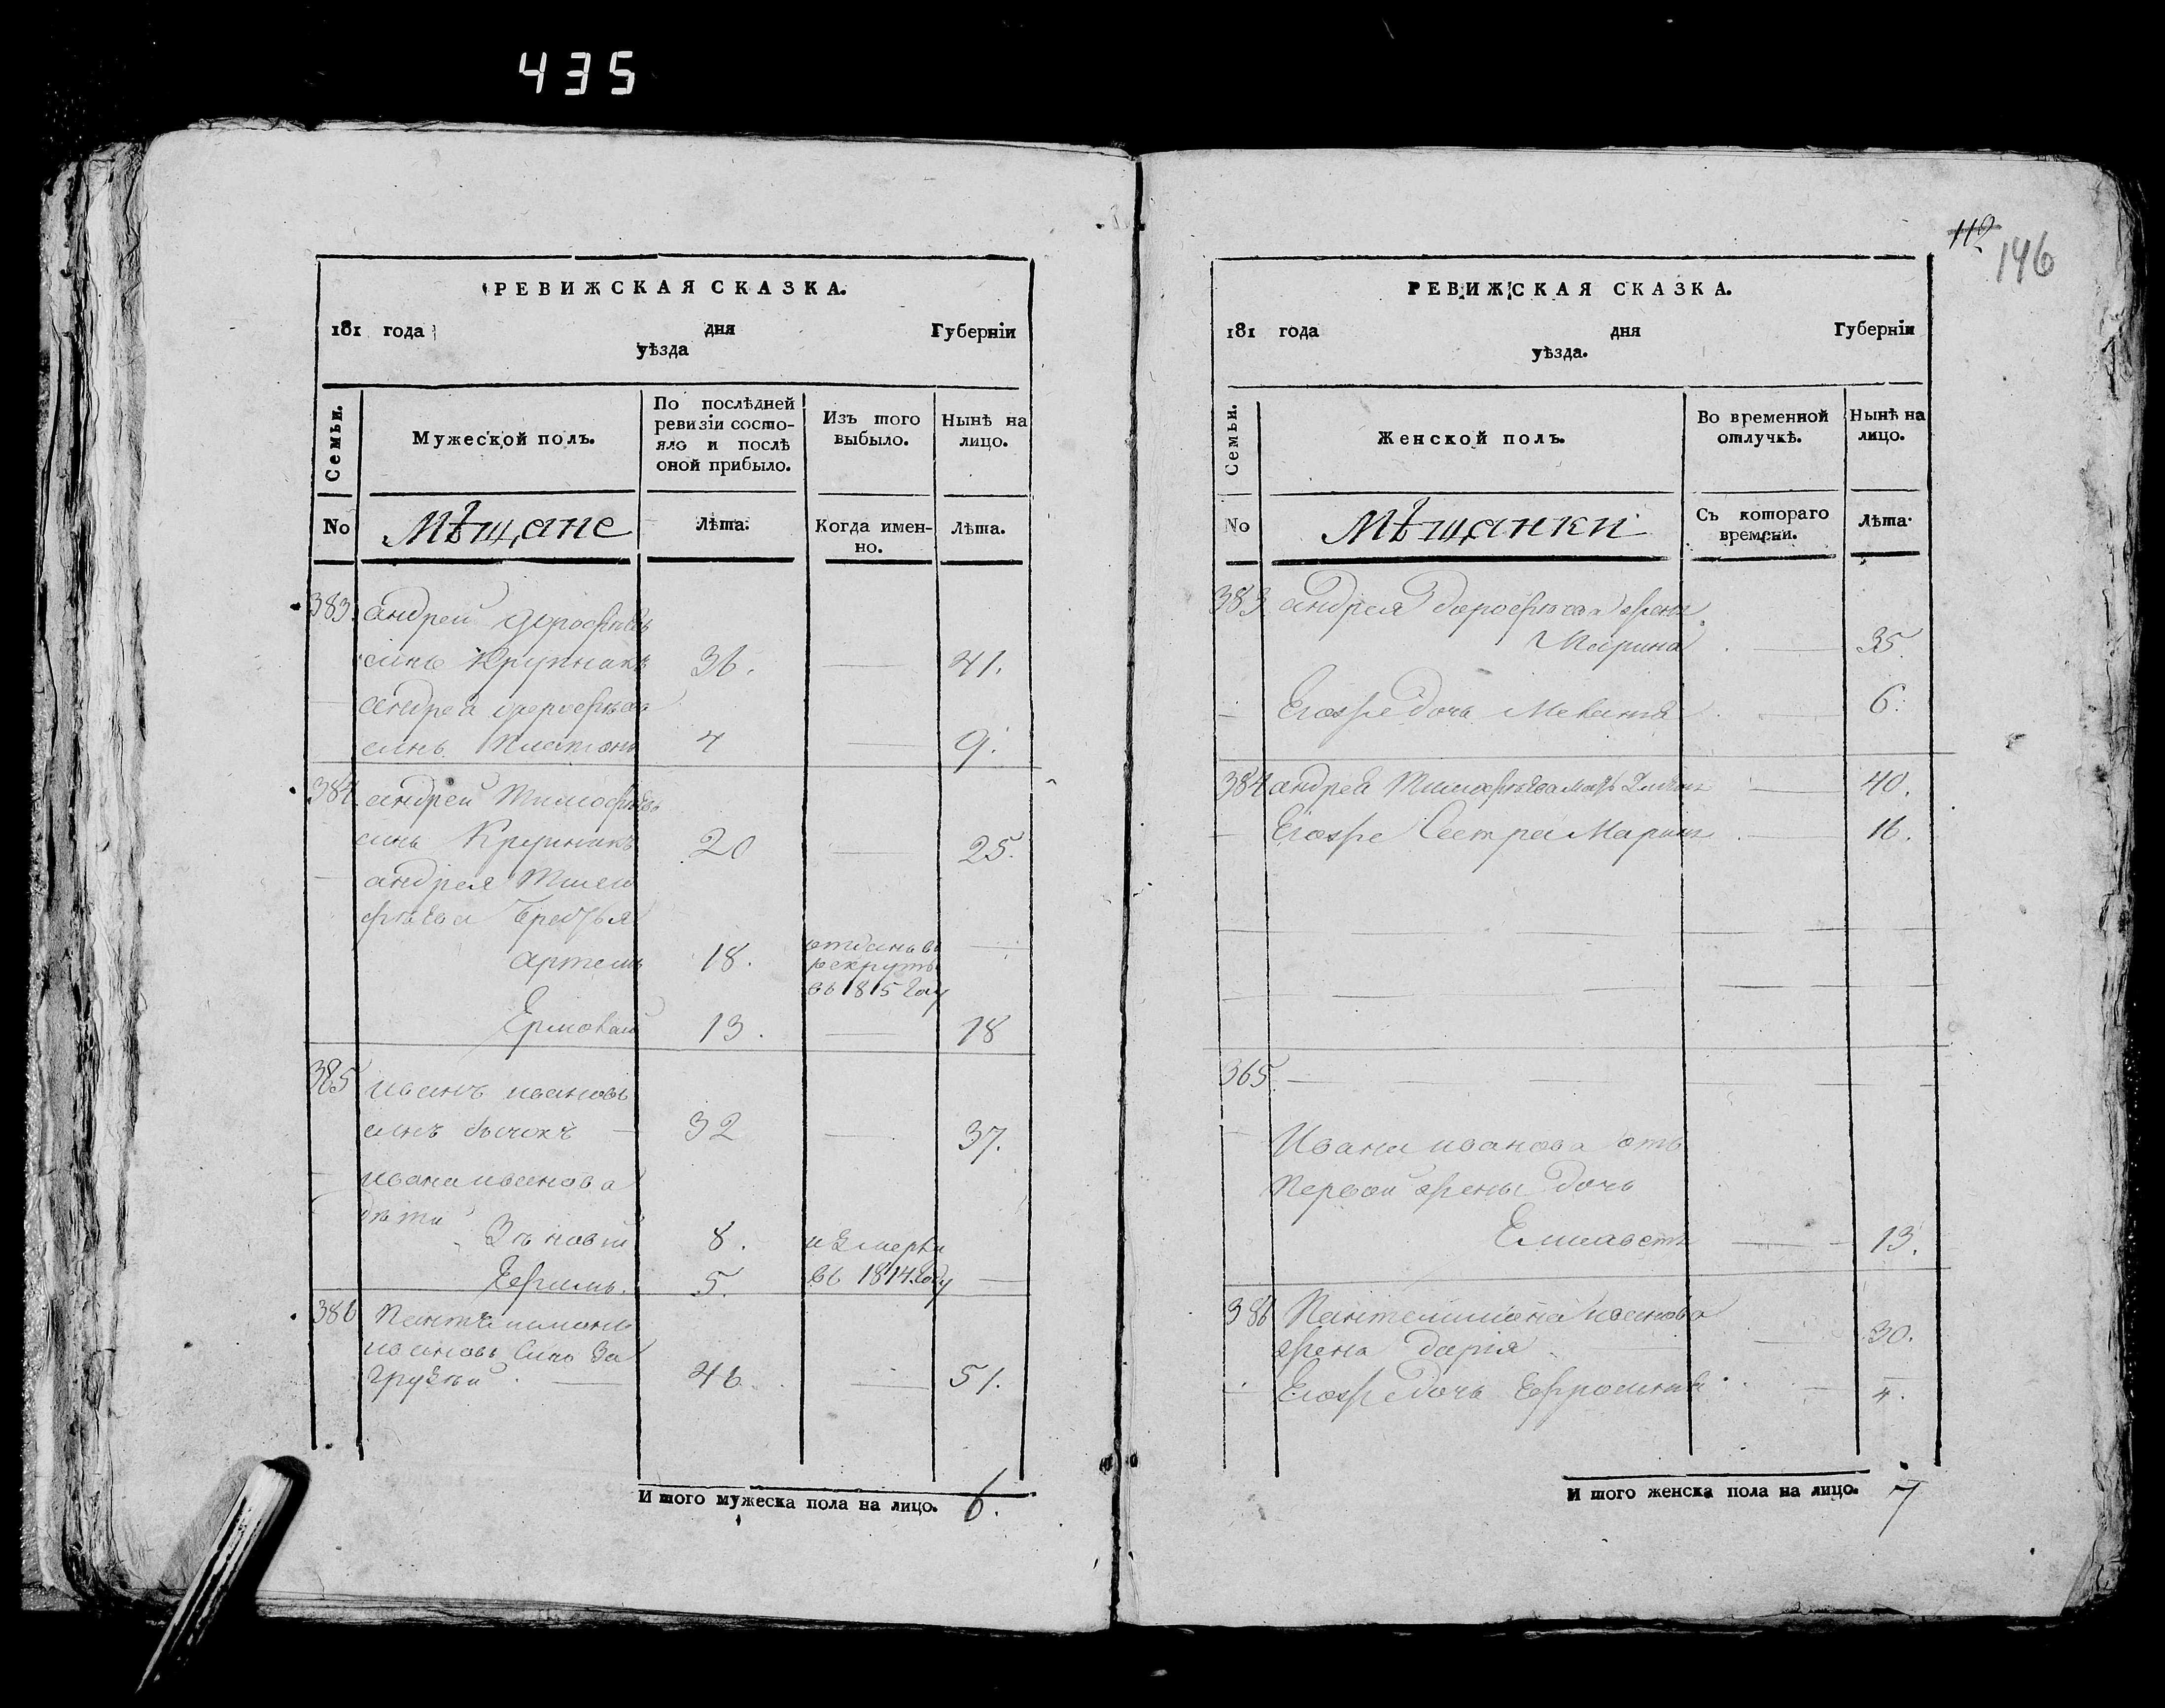 435
РЕВИЖСКАЯ СКАЗКА.
181 года дня Губерніи
уѣзда
Семьи.
Мужеской полъ.
По послѣдней ревизіи состо-
яло и послѣ оной прибыло.
Изъ того выбыло.
Нынѣ на лицо.
No
Мѣщане
Лѣта.
Когда имен-
но.
Лѣта.
383. андрей дорофѣевъ
синъ Крупникъ 36. 41.
андрея дорофѣева
синъ Платонъ 4 9.
384. андрей Тимофѣевъ
синъ Крупникъ 20 25.
андрея Тимо
фѣева братья
артемъ 18. отданъ въ
рекруты
въ 1815 году
Ермолай 13. 18
385 иванъ ивановъ
синъ бычокъ 32 37.
ивана иванова
дѣти
Зѣновій 8. измерли
Ефимъ. 5. въ 1814. году
386 Пантелимонъ
ивановъ синъ За
грузни 46. 51.
И того мужеска пола на лицо. 6.
112
146
РЕВИЖСКАЯ СКАЗКА.
181 года дня Губерніи
уѣзда.
Семьи.
Женской полъ.
Во временной отлучкѣ.
Нынѣ на лицо.
No
Мѣщанки
Съ котораго времени.
Лѣта.
383 андрея дорофѣева жена
Марина 35.
Егожъ дочь Меланія 6.
384 андрея Тимофѣева мать 40.
Егожъ Сестра Марина 16.
365.
Ивана иванова отъ
первой жены дочь
Елисавета 13.
386 Пантелимона иванова
жена дарія 30.
Егожъ дочь Ефросинія 4.
И того женска пола на лицо. 7